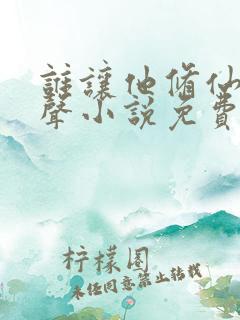 誰讓他脩仙
聲小說免費
柠檬圈
未经同意禁止转载